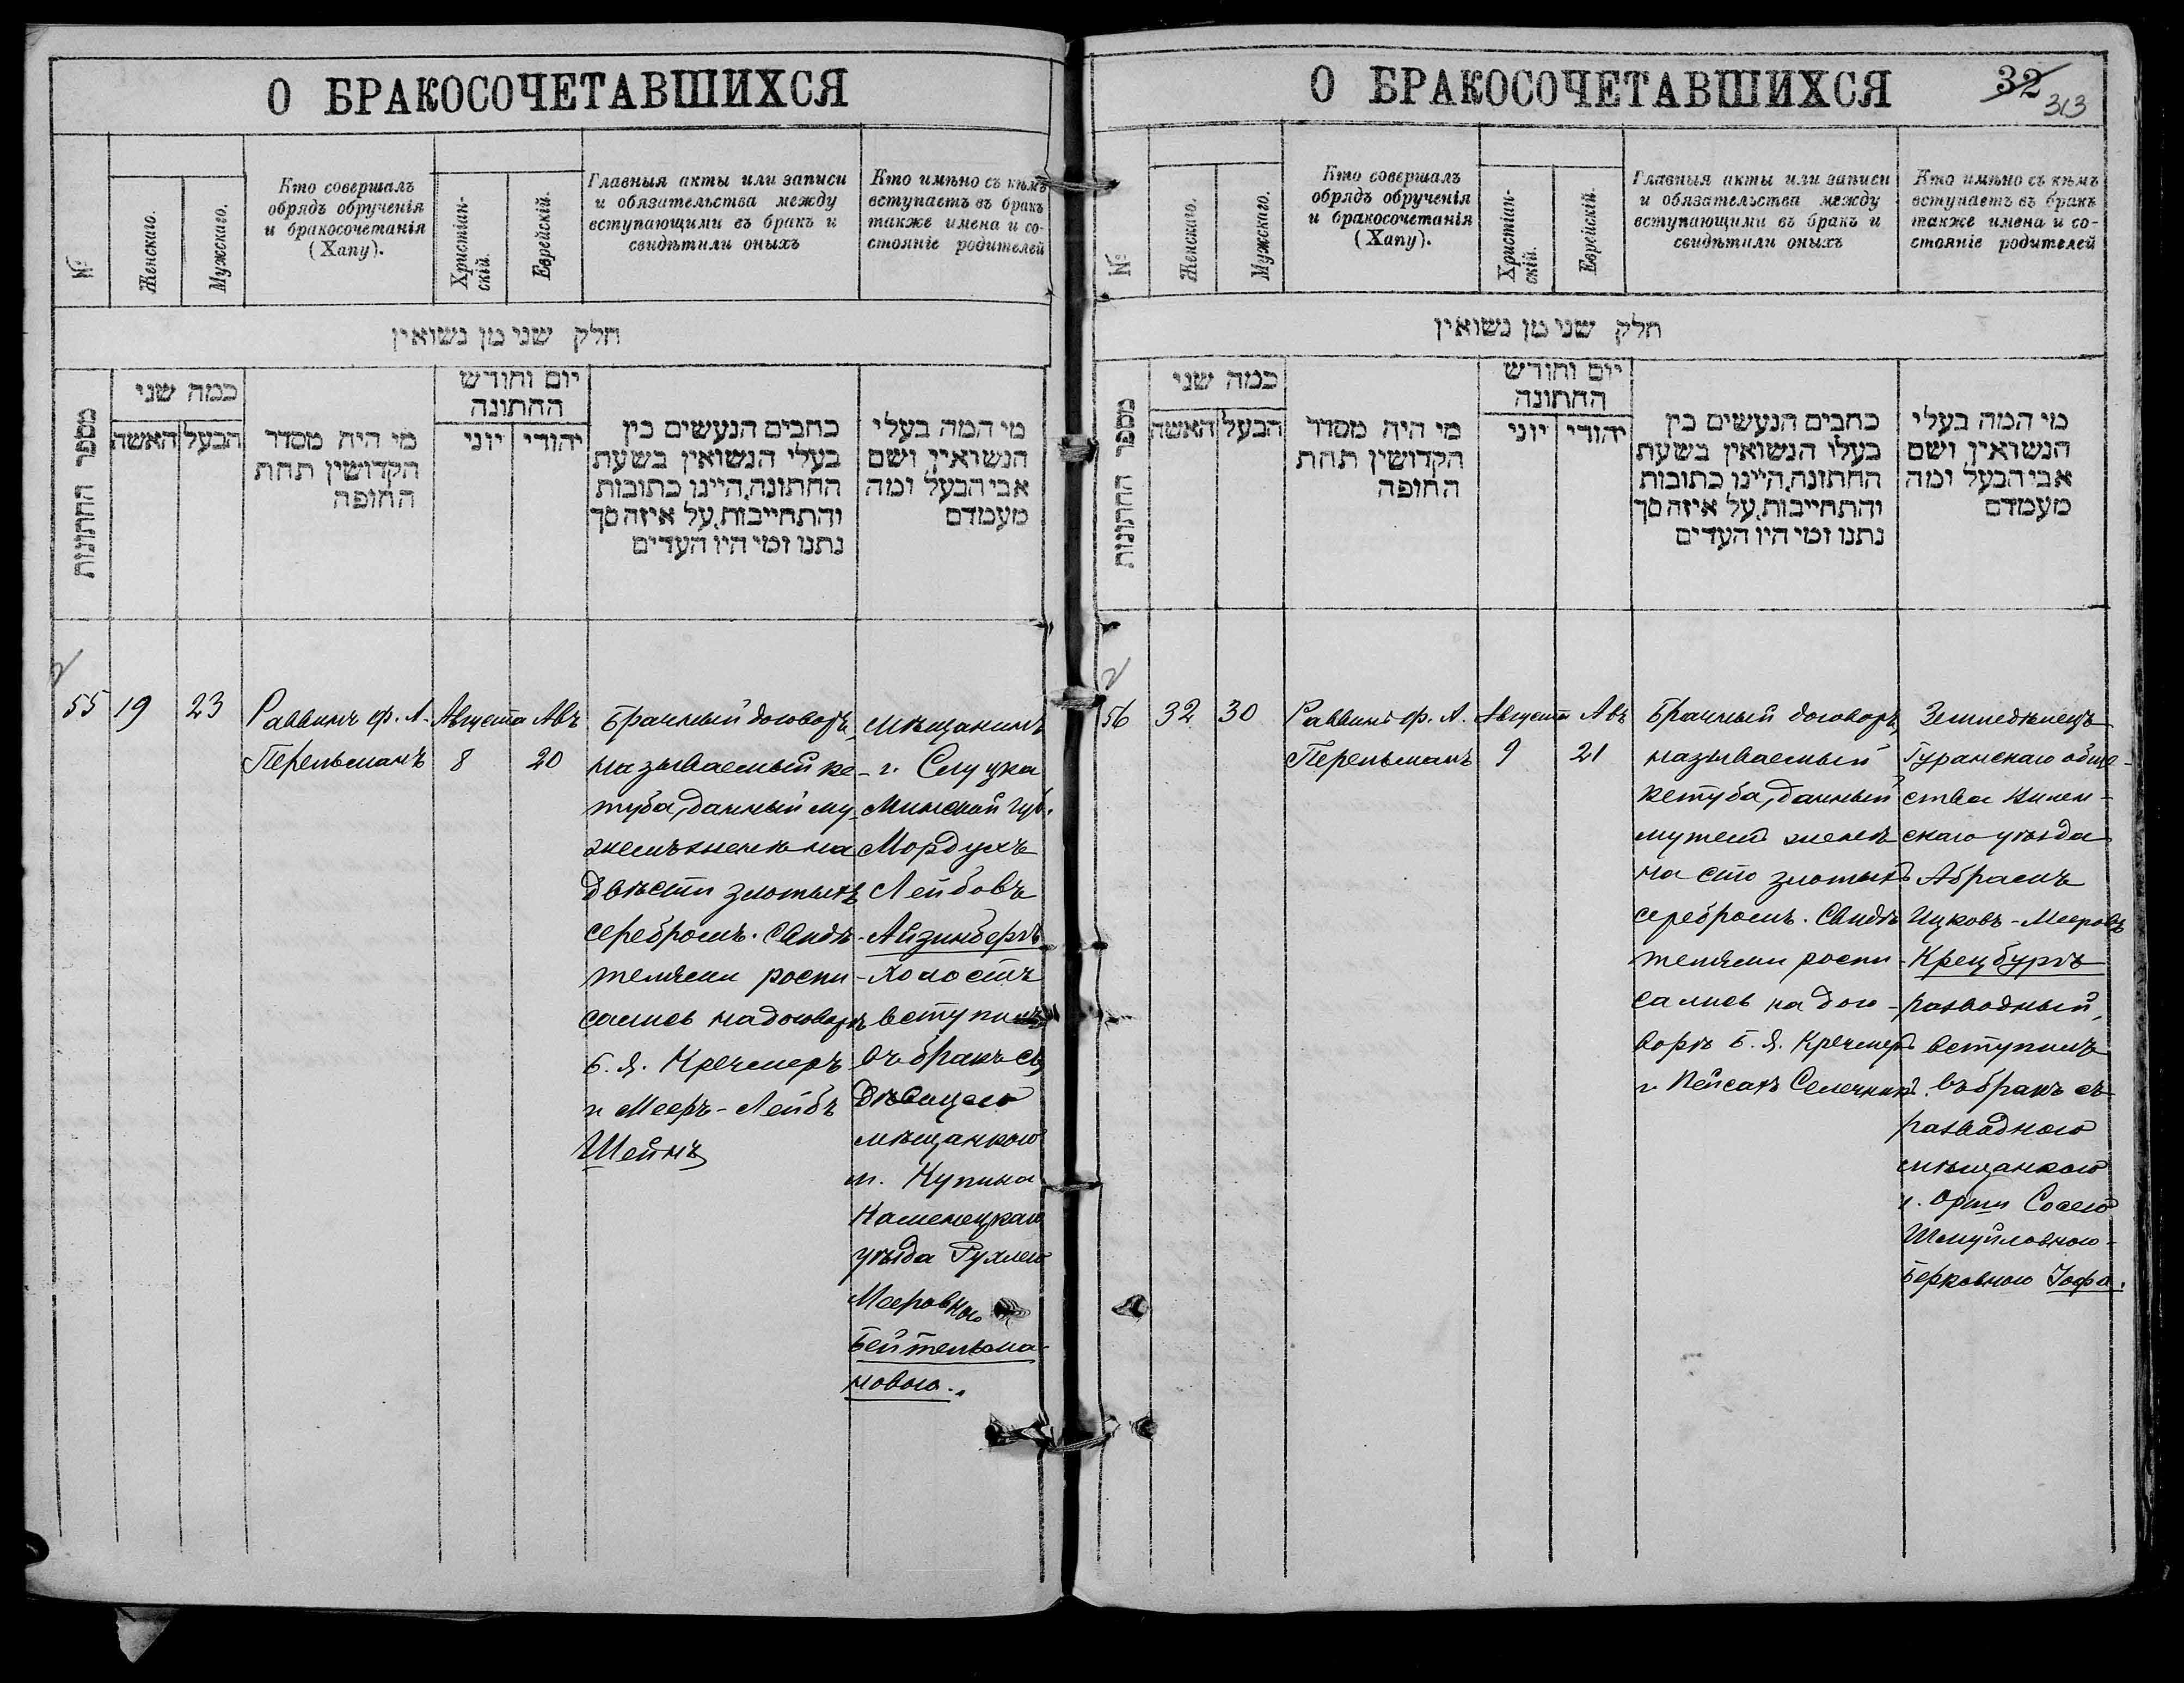 О БРАКОСОЧЕТАВШИХСЯ
№
Женскаго.
Мужскаго.
Кто совершалъ
обрядъ обрученія
и бракосочетанія
(Хапу).
Христіан-
скій.
Еврейскій.
Главныя акты или записи
и обязательства между
вступающими въ бракъ и
свидѣтили оныхъ
Кто имѣно съ кѣмъ
вступаетъ въ бракъ
также имена и со-
стояніе родителей
חלק שני מן נשואין
מספר החתונות
כמה שני
האשה
הבעל
מי היה מסדר
הקדושין תחת
החופה
יום וחודש
החתונה
יוני
יהודי
כתבים הנעשים בין
בעלי הנשואין בשעת
החתונה, היינו כתובות
והתחייבות, על איזה סך
נתנו ומי היו העדים
מי המה בעלי
הנשואין, ושם
אבי הבעל ומה
מעמדם
55
19
23
Раввинъ ф. А.
Перельманъ
Августа
8
Авъ
20
Брачный договоръ,
называемый ке-
туба, данный му-
жемъ женѣ на
двѣсти злотыхъ
серебромъ. Свидѣ-
телями роспи-
сались на договорѣ
Б. Я. Кречмеръ
и Мееръ-Лейбъ
Шейнъ
Мѣщанинъ
г. Слуцка
Минской губ.
Мордухъ
Лейбовъ
Айзинбергъ
холостъ
вступилъ
въ бракъ съ
дѣвицею
мѣщанкою
м. Купина
Каменецкаго
уѣзда Рухлею
Мееровною
Бейтельма-
новою.
О БРАКОСОЧЕТАВШИХСЯ
32
313
№
Женскаго.
Мужскаго.
Кто совершалъ
обрядъ обрученія
и бракосочетанія
(Хапу).
Христіан-
скій.
Еврейскій.
Главныя акты или записи
и обязательства между
вступающими въ бракъ и
свидѣтили оныхъ
Кто имѣно съ кѣмъ
вступаетъ въ бракъ
также имена и со-
стояніе родителей
חלק שני מן נשואין
מספר החתונות
כמה שני
האשה
הבעל
מי היה מסדר
הקדושין תחת
החופה
יום וחודש
החתונה
יוני
יהודי
כתבים הנעשים בין
בעלי הנשואין בשעת
החתונה, היינו כתובות
והתחייבות, על איזה סך
נתנו ומי היו העדים
מי המה בעלי
הנשואין ושם
אבי הבעל ומה
מעמדם
56
32
30
Раввинъ ф. А.
Перельманъ
Августа
9
Авъ
21
Брачный договоръ,
называемый
кетуба, данный
мужемъ женѣ
на сто злотыхъ
серебромъ. Свидѣ-
телями роспи-
сались на дого-
ворѣ Б. Я. Кречмеръ
и Пейсахъ Селечникъ.
Земледѣлецъ
Гуранскаго обще-
ства Вилен-
скаго уѣзда
Абрамъ
Ицковъ-Мееровъ
Крецбургъ
разводный,
вступилъ
въ бракъ съ
разводною
мѣщанкою
г. Орши Сосею
Шмуйловною-
Берковною Іофа.